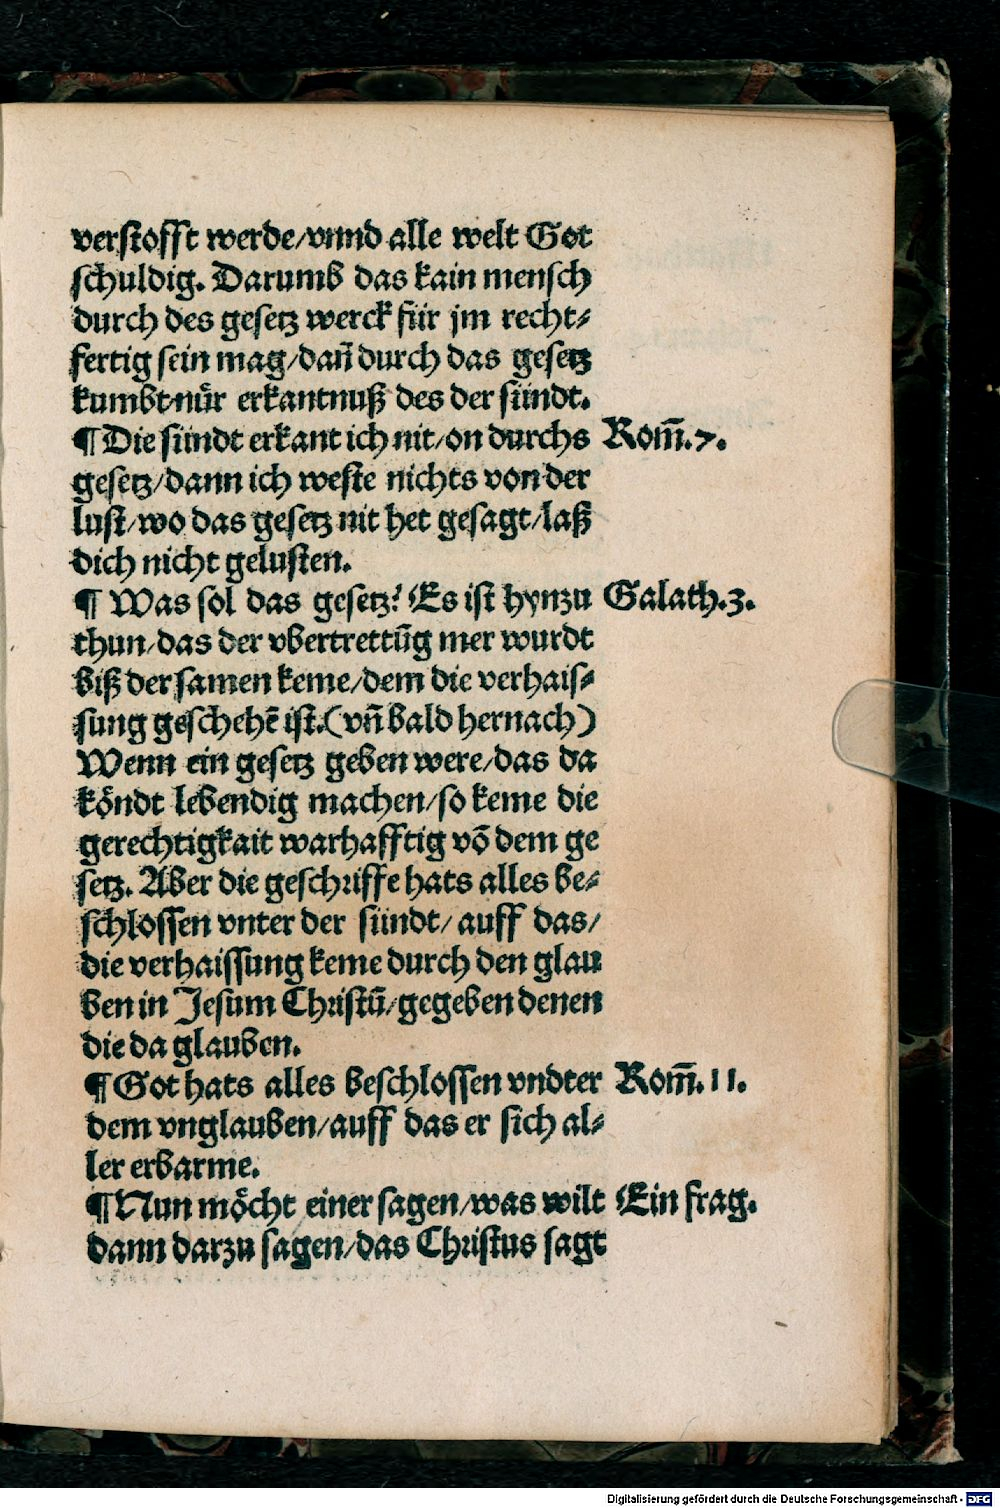 verstofft werde/vnnd alle welt Got
schuldig. Darumb das kain mensch
durch des gesetz werck für jm recht⸗
fertig sein mag/dañ durch das gesetz
kumbt nůr erkantnuß des der sündt.
¶ Die sündt erkant ich nit/on durchs Rom̃.7.
gesetz/dann ich weste nichts von der
lust/wo das gesetz nit het gesagt/laß
dich nicht gelusten.
¶ Was sol das gesetz? Es ist hynzu Galath.3.
thun/das der vbertrettūg mer wurdt
biß der samen keme/dem die verhais⸗
sung geschehē ist.(vñ bald hernach)
Wenn ein gesetz geben were/das da
köndt lebendig machen/so keme die
gerechtigkait warhafftig vō dem ge
setz. Aber die geschriffe hats alles be⸗
schlossen vnter der sündt/ auff das/
die verhaissung keme durch den glau
ben in Jesum Christū/gegeben denen
die da glauben.
¶ Got hats alles beschlossen vndter Rom̃.11.
dem vnglauben/auff das er sich al⸗
ler erbarme.
¶ Nun möcht einer sagen/was wilt Ein frag.
dann darzu sagen/das Christus sagt
Digitalisierung gefördert durch die Deutsche Forschungsgemeinschaft - DFG